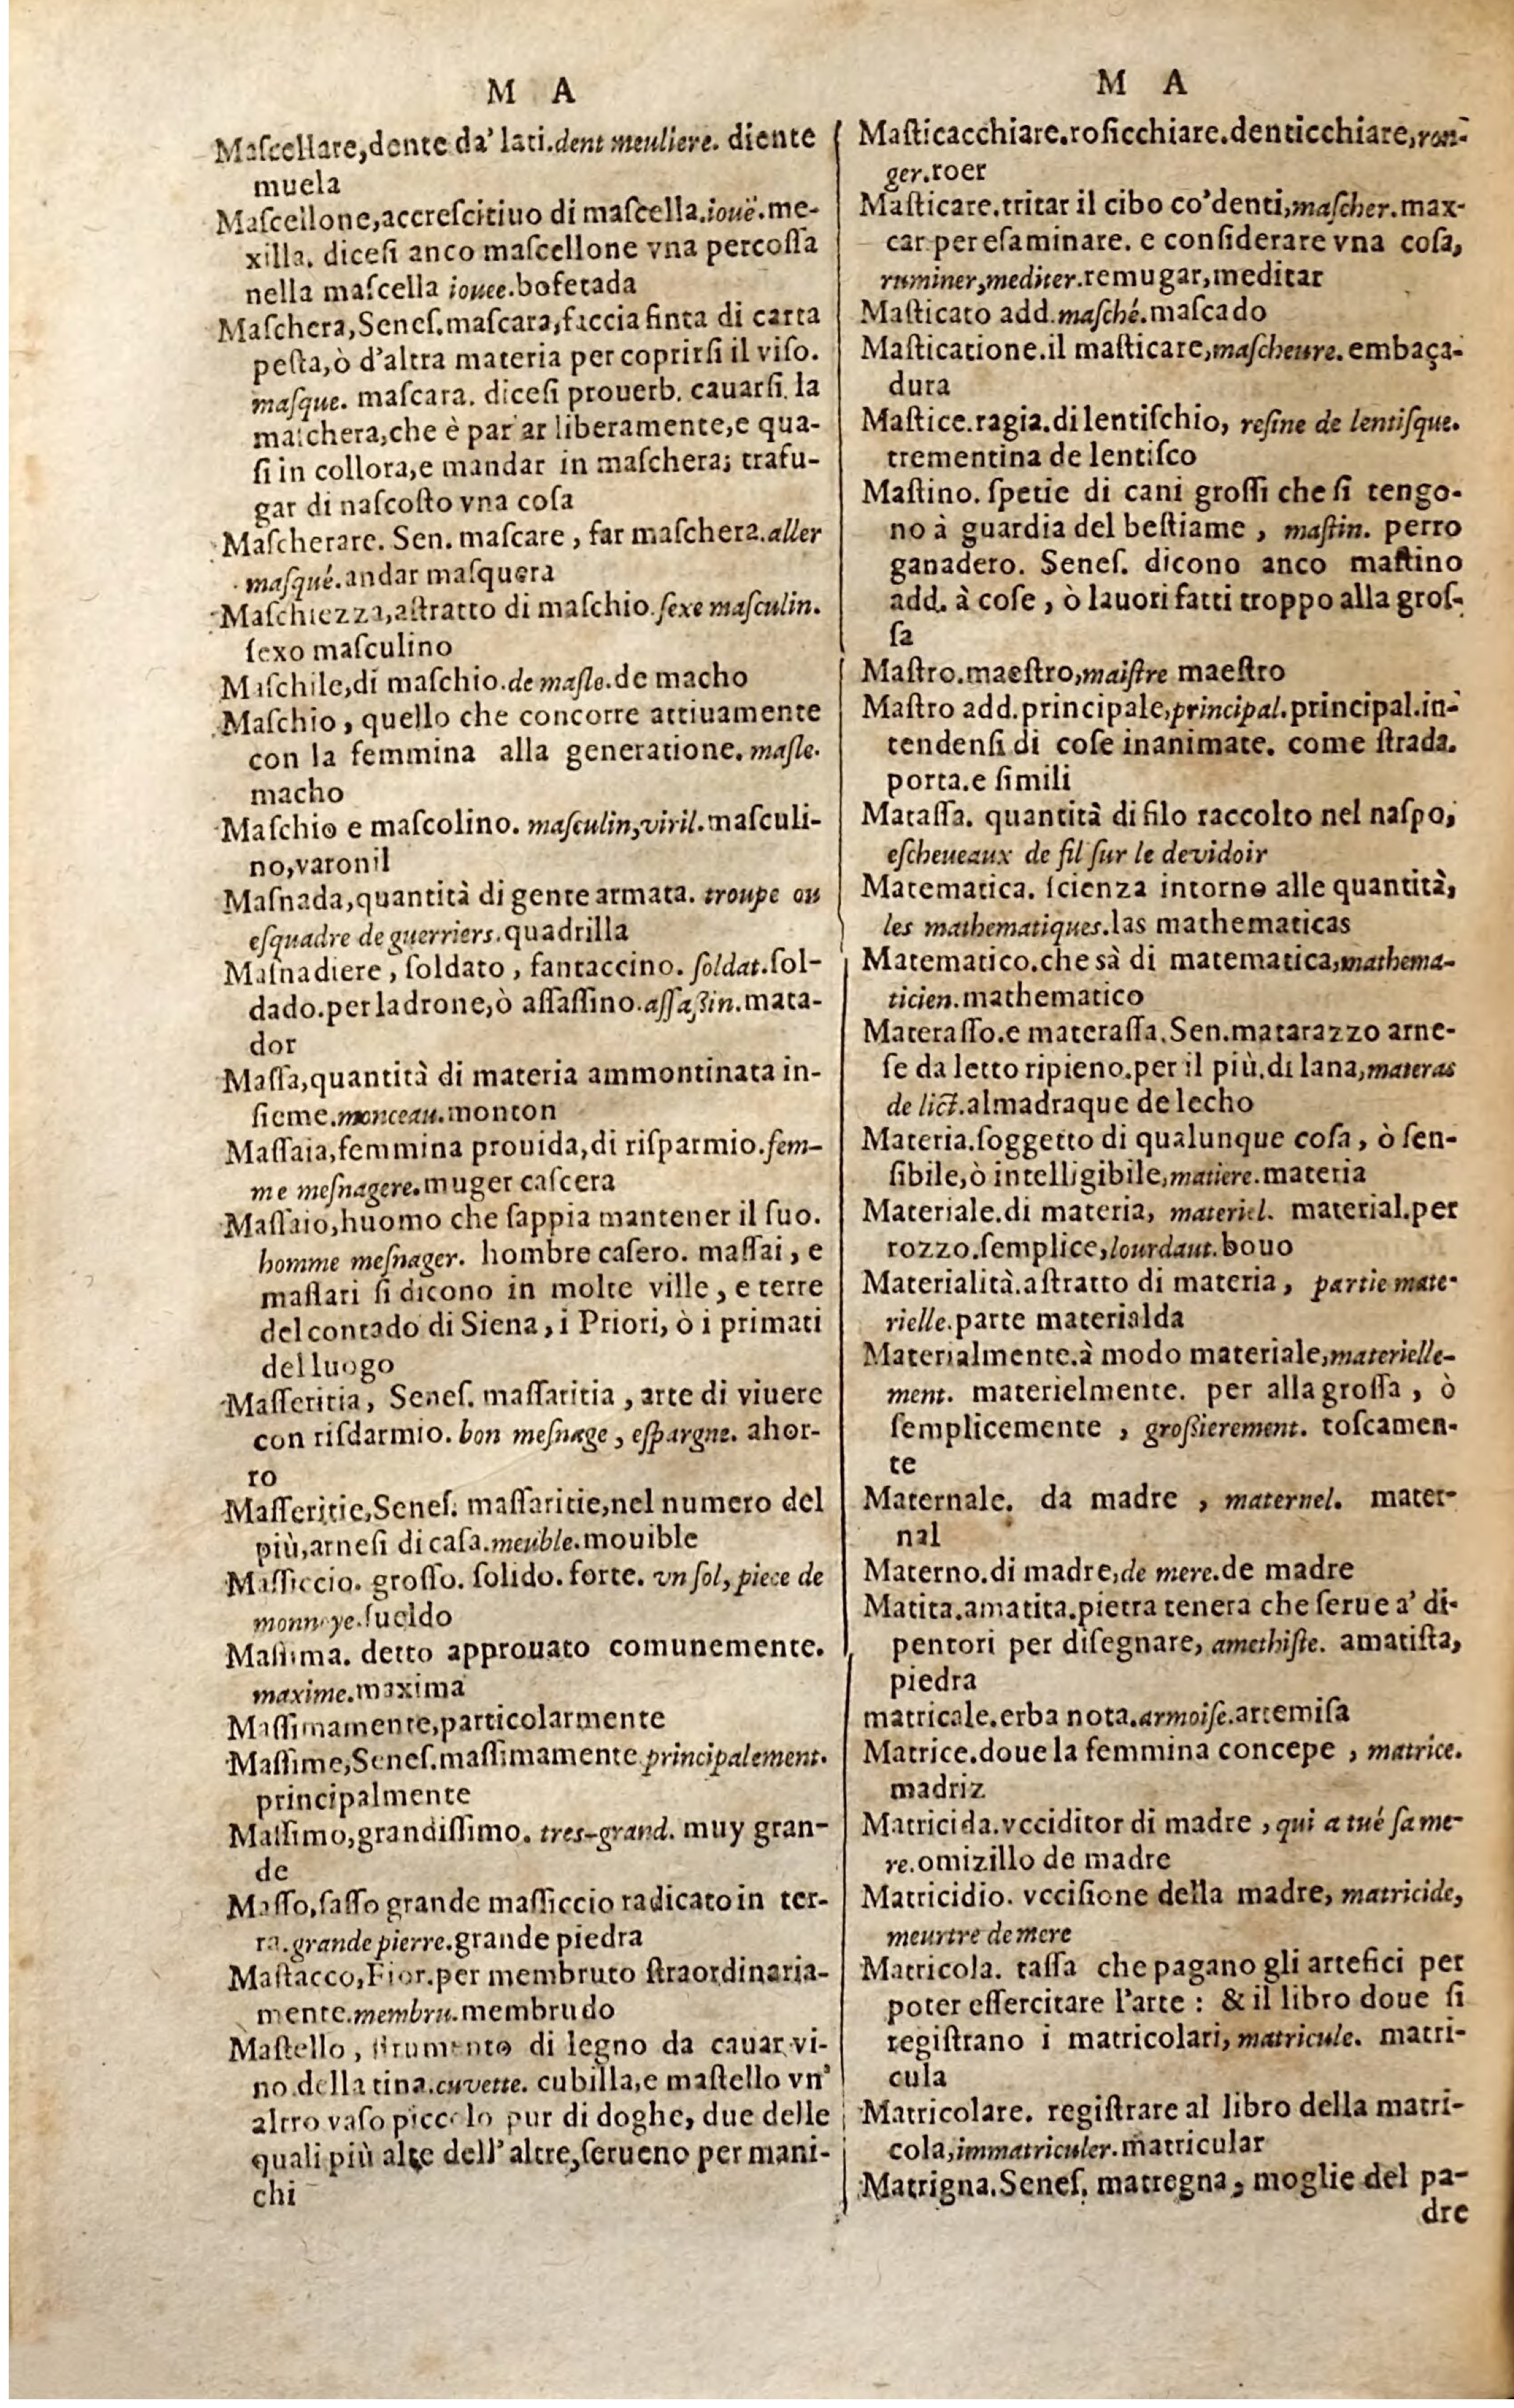 M A
Maſcellare,dente da' lati.dent meuliere. diente
muela
Maſcellone,accreſcitiuo di maſcella.iouë.me-
xilla. diceſi anco maſcellone vna percoſſa
nella maſcella iouee.bofetada
Maſchera,Seneſ.maſcara,faccia finta di carta
peſta,ò d'altra materia per coprirſi il viſo.
maſque. maſcara. diceſi prouerb. cauarſi la
maſchera,che è par ar liberamente,e qua-
ſi in collora,e mandar in maſchera; trafu-
gar di naſcoſto vna coſa
Maſcherare. Sen. maſcare , far maſchera.aller
maſqué.andar maſquera
Maſchiezza,aſtratto di maſchio.ſexe maſculin.
ſexo maſculino
Maſchile,di maſchio.de maſle.de macho
Maſchio , quello che concorre attiuamente
con la femmina alla generatione. maſle.
macho
Maſchio e maſcolino. maſculin,viril.maſculi-
no,varonil
Maſnada,quantità di gente armata. troupe ou
eſquadre de guerriers.quadrilla
Maſnadiere , ſoldato , fantaccino. ſoldat.ſol-
dado.per ladrone,ò aſſaſſino.aſſaßin.mata-
dor
Maſſa,quantità di materia ammontinata in-
ſieme.monceau.monton
Maſſaia,femmina prouida,di riſparmio.fem-
me meſnagere.muger caſcera
Maſſaio,huomo che ſappia mantener il ſuo.
homme meſnager. hombre caſero. maſſai , e
maſſari ſi dicono in molte ville , e terre
del contado di Siena , i Priori, ò i primati
del luogo
Maſſeritia, Seneſ. maſſaritia , arte di viuere
con riſdarmio. bon meſnage , eſpargne. ahor-
ro
Maſſeritie,Seneſ. maſſaritie,nel numero del
più,arneſi di caſa.meuble.mouible
Maſſiccio. groſſo. ſolido. forte. vn ſol, piece de
monnoye.ſueldo
Maſſima. detto approuato comunemente.
maxime.maxima
Maſſimamente,particolarmente
Maſſime,Seneſ.maſſimamente principalement.
principalmente
Maſſimo,grandiſſimo. tres-grand. muy gran-
de
Maſſo,ſaſſo grande maſſiccio radicato in ter-
ra.grande pierre.grande piedra
Maſtacco,Fior.per membruto ſtraordinaria-
mente.membru.membrudo
Maſtello , ſtrumento di legno da cauar vi-
no della tina.cuvette. cubilla,e maſtello vn'
altro vaſo piccolo pur di doghe, due delle
quali più alte dell'altre,ſerueno per mani-
chi
M A
Maſticacchiare.roſicchiare.denticchiare,ron-
ger.roer
Maſticare.tritar il cibo co'denti,maſcher.max-
car per eſaminare. e conſiderare vna coſa,
ruminer,mediter.remugar,meditar
Maſticato add.maſché.maſcado
Maſticatione.il maſticare,maſcheure.embaça-
dura
Maſtice.ragia.di lentiſchio, reſine de lentiſque.
trementina de lentiſco
Maſtino. ſpetie di cani groſſi che ſi tengo-
no à guardia del beſtiame , maſtin. perro
ganadero. Seneſ. dicono anco maſtino
add. à coſe , ò lauori fatti troppo alla groſ-
ſa
Maſtro.maeſtro,maiſtre maeſtro
Maſtro add.principale,principal.principal.in-
tendenſi di coſe inanimate. come ſtrada.
porta.e ſimili
Mataſſa. quantità di filo raccolto nel naſpo,
eſcheueaux de fil ſur le devidoir
Matematica. ſcienza intorno alle quantità,
les mathematiques.las mathematicas
Matematico.che sà di matematica,mathema-
ticien.mathematico
Materaſſo.e materaſſa.Sen.matarazzo arne-
ſe da letto ripieno.per il più.di lana,materas
de lict.almadraque de lecho
Materia.ſoggetto di qualunque coſa , ò ſen-
ſibile,ò intelligibile,matiere.materia
Materiale.di materia, materiel. material.per
rozzo.ſemplice,lourdaut.bouo
Materialità.aſtratto di materia , partie mate-
rielle.parte materialda
Materialmente.à modo materiale,materielle-
ment. materielmente. per alla groſſa , ò
ſemplicemente , großierement. toſcamen-
te
Maternale. da madre , maternel. mater-
nal
Materno.di madre,de mere.de madre
Matita.amatita.pietra tenera che ſerue a' di-
pentori per diſegnare, amethiſte. amatiſta,
piedra
matricale.erba nota.armoiſe.artemiſa
Matrice.doue la femmina concepe , matrice.
madriz
Matricida.vcciditor di madre , qui a tué ſa me-
re.omizillo de madre
Matricidio. vcciſione della madre, matricide,
meurtre de mere
Matricola. taſſa che pagano gli artefici per
poter eſſercitare l'arte : & il libro doue ſi
regiſtrano i matricolati, matricule. matri-
cula
Matricolare. regiſtrare al libro della matri-
cola,immatriculer.matricular
Matrigna.Seneſ. matregna , moglie del pa-
dre